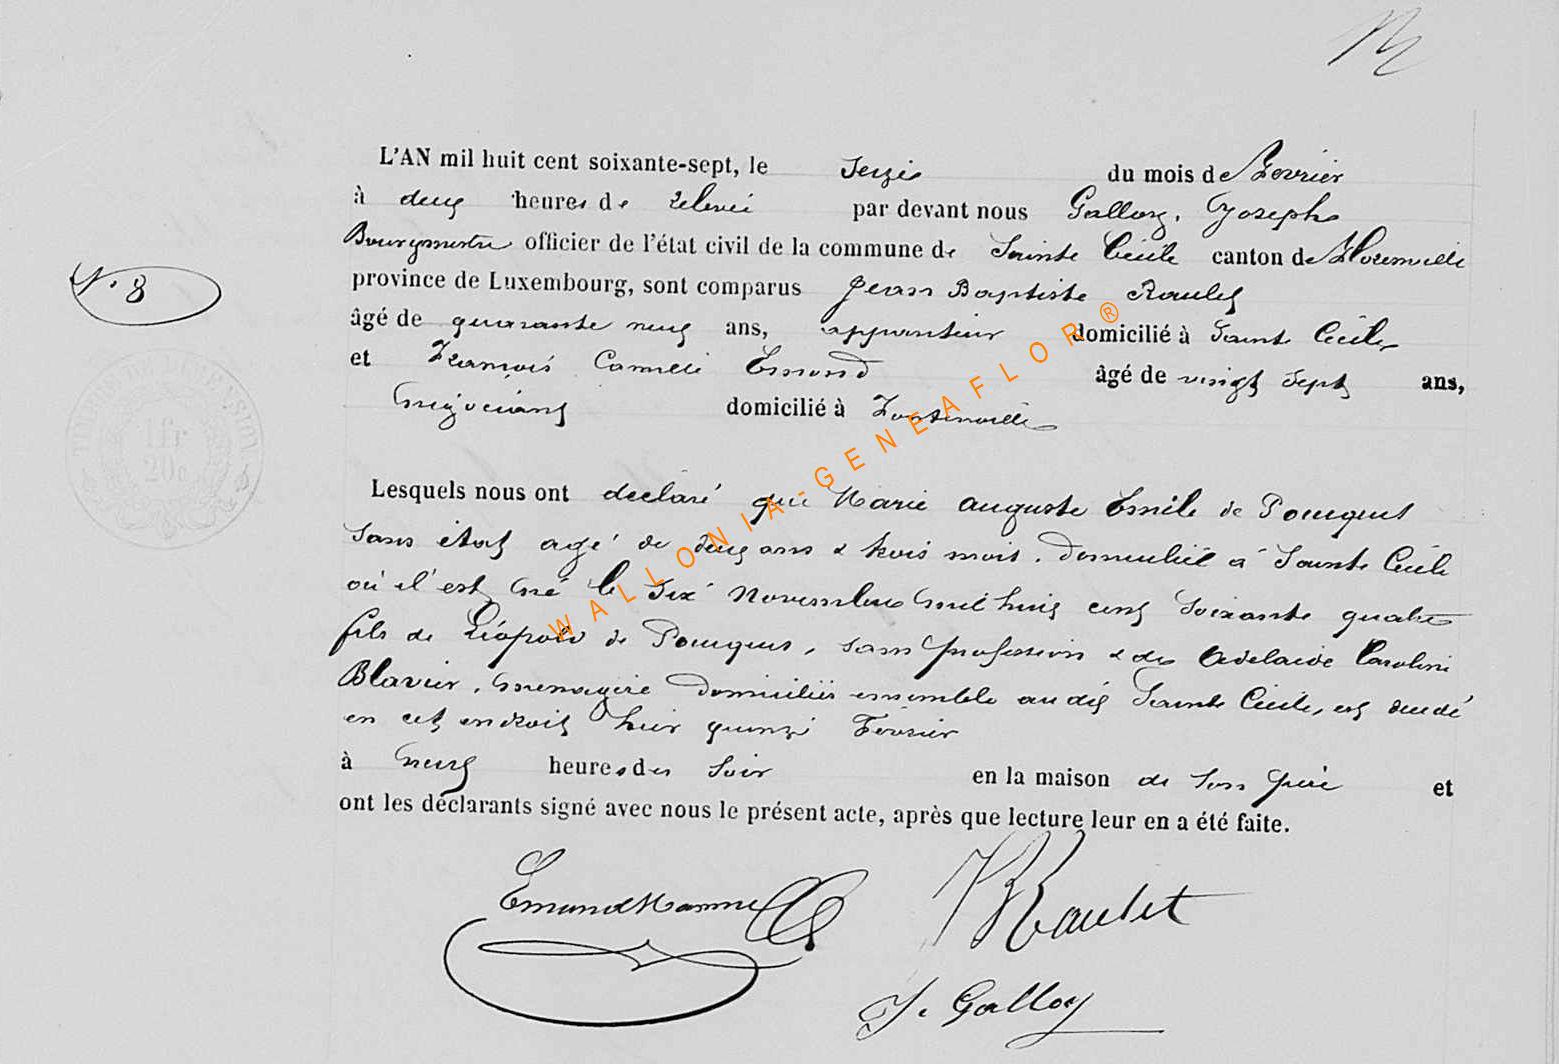 L'AN mil huit cent soixante-sept, le seize du mois de Février
à deux heures de relevée par devant nous Galloy, Joseph
Bourgmestre officier de l'état civil de la commune de Sainte Cécile canton de Florenville
N° 8
province de Luxembourg, sont comparus Jean Baptiste Raulet
âgé de quarante neuf ans, appariteur domicilié à Sainte Cécile
et François Camille Emond âgé de vingt sept ans,
négociant domicilié à Fontenoille
TIMBRE DE DIMENSION
1 fr
20c
Lesquels nous ont déclaré que Marie Auguste Emile de Pouques
sans état agé de deux ans & trois mois, domicilié à Sainte Cécile
où il est né le six Novembre mil huit cent soixante quatre
fils de Léopold de Pouques, sans profession & de Adelaïde Caroline
Blavier, ménagère domiciliés ensemble au dit Sainte Cécile, est décédé
en cet endroit hier quinze Février
à neuf heures du soir en la maison de son père et
ont les déclarants signé avec nous le présent acte, après que lecture leur en a été faite.
Emond
Raulet
J. Galloy
WALLONIA-GENEAFLOR®